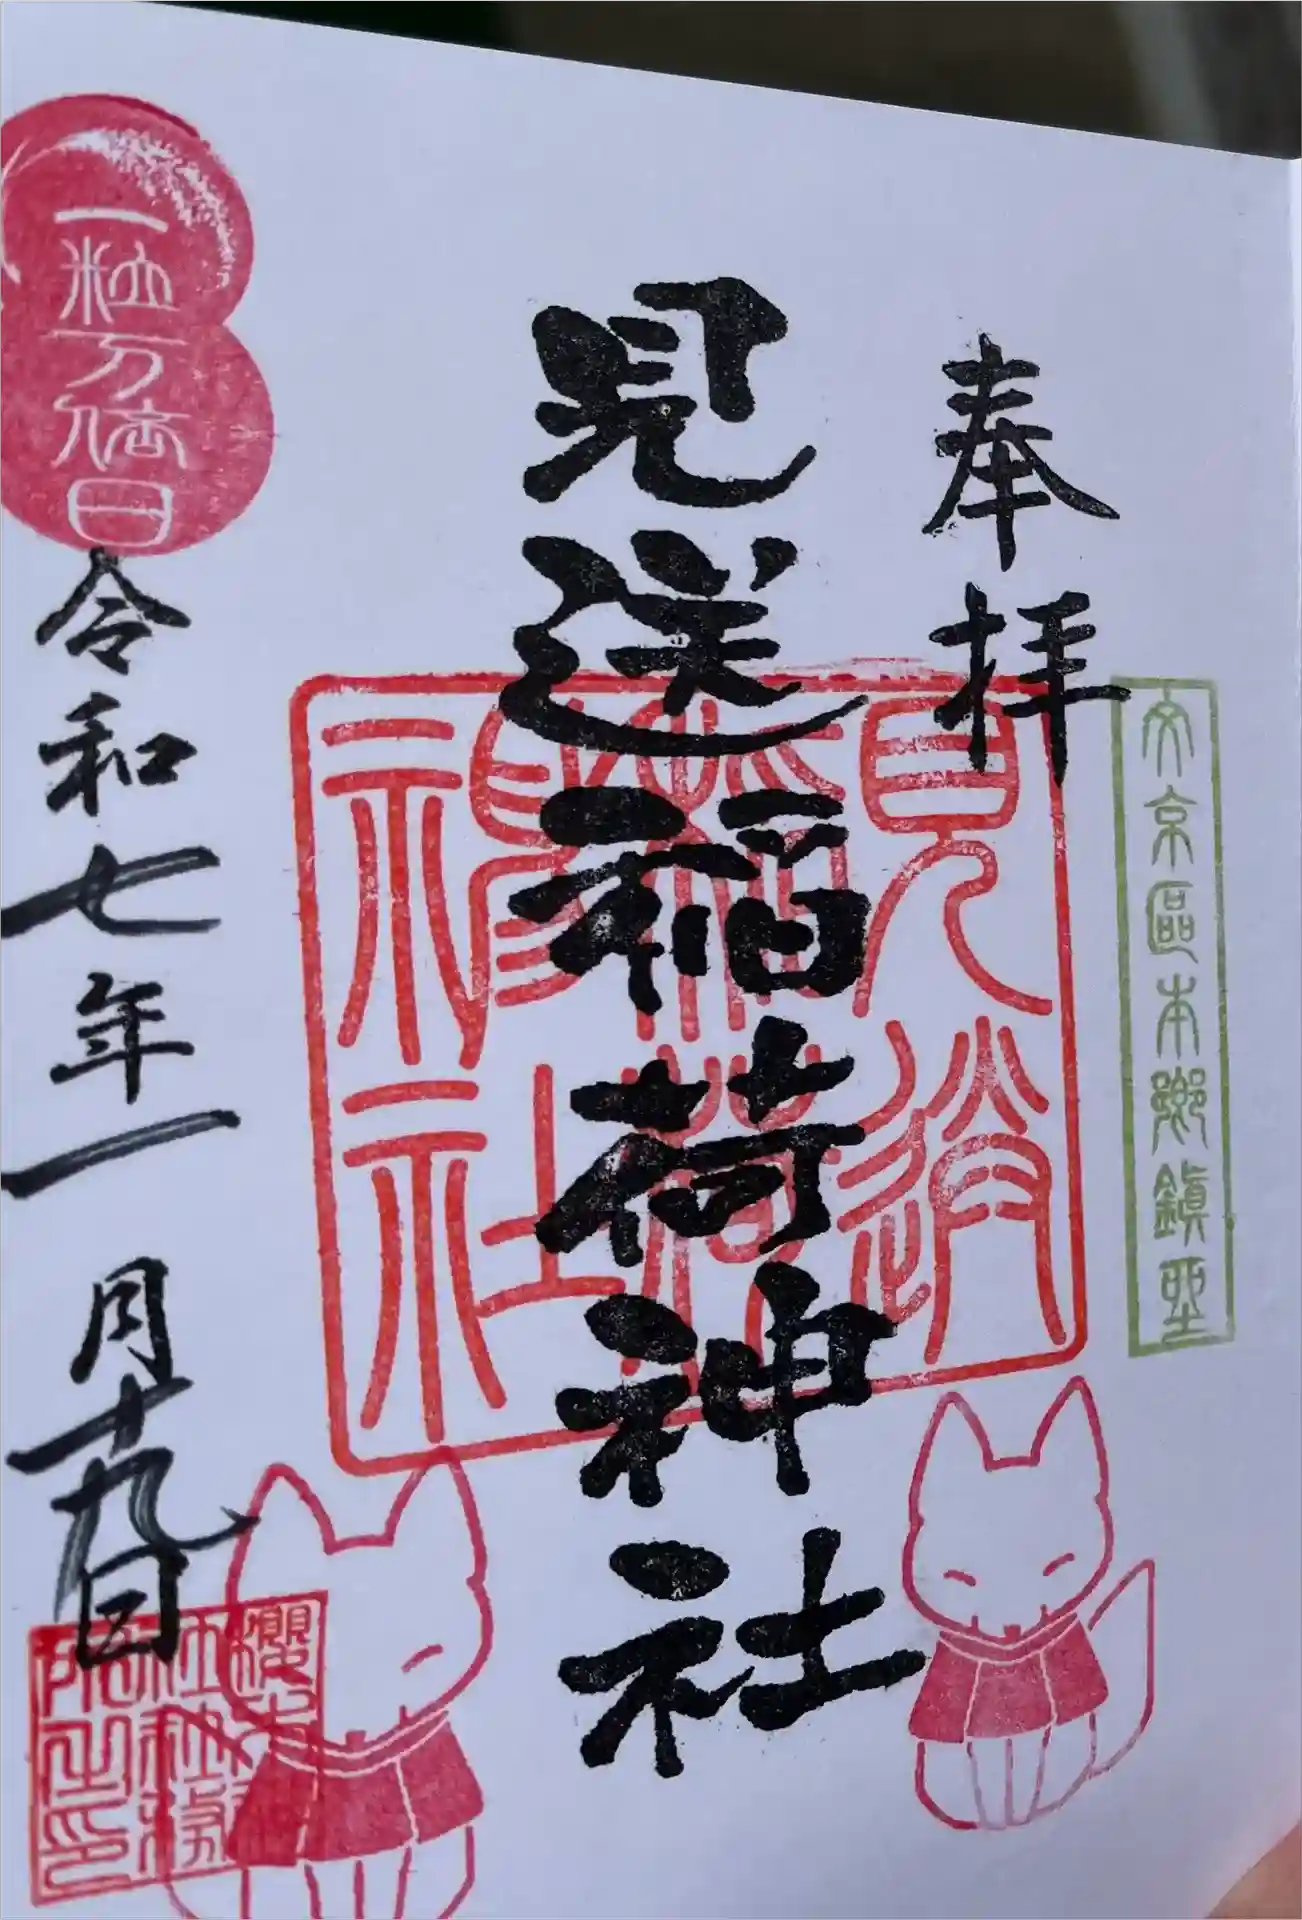 奉拝
文京區本郷鎮座
見送稲荷神社
見送稲荷神社
一粒万倍日
令和七年一月十九日